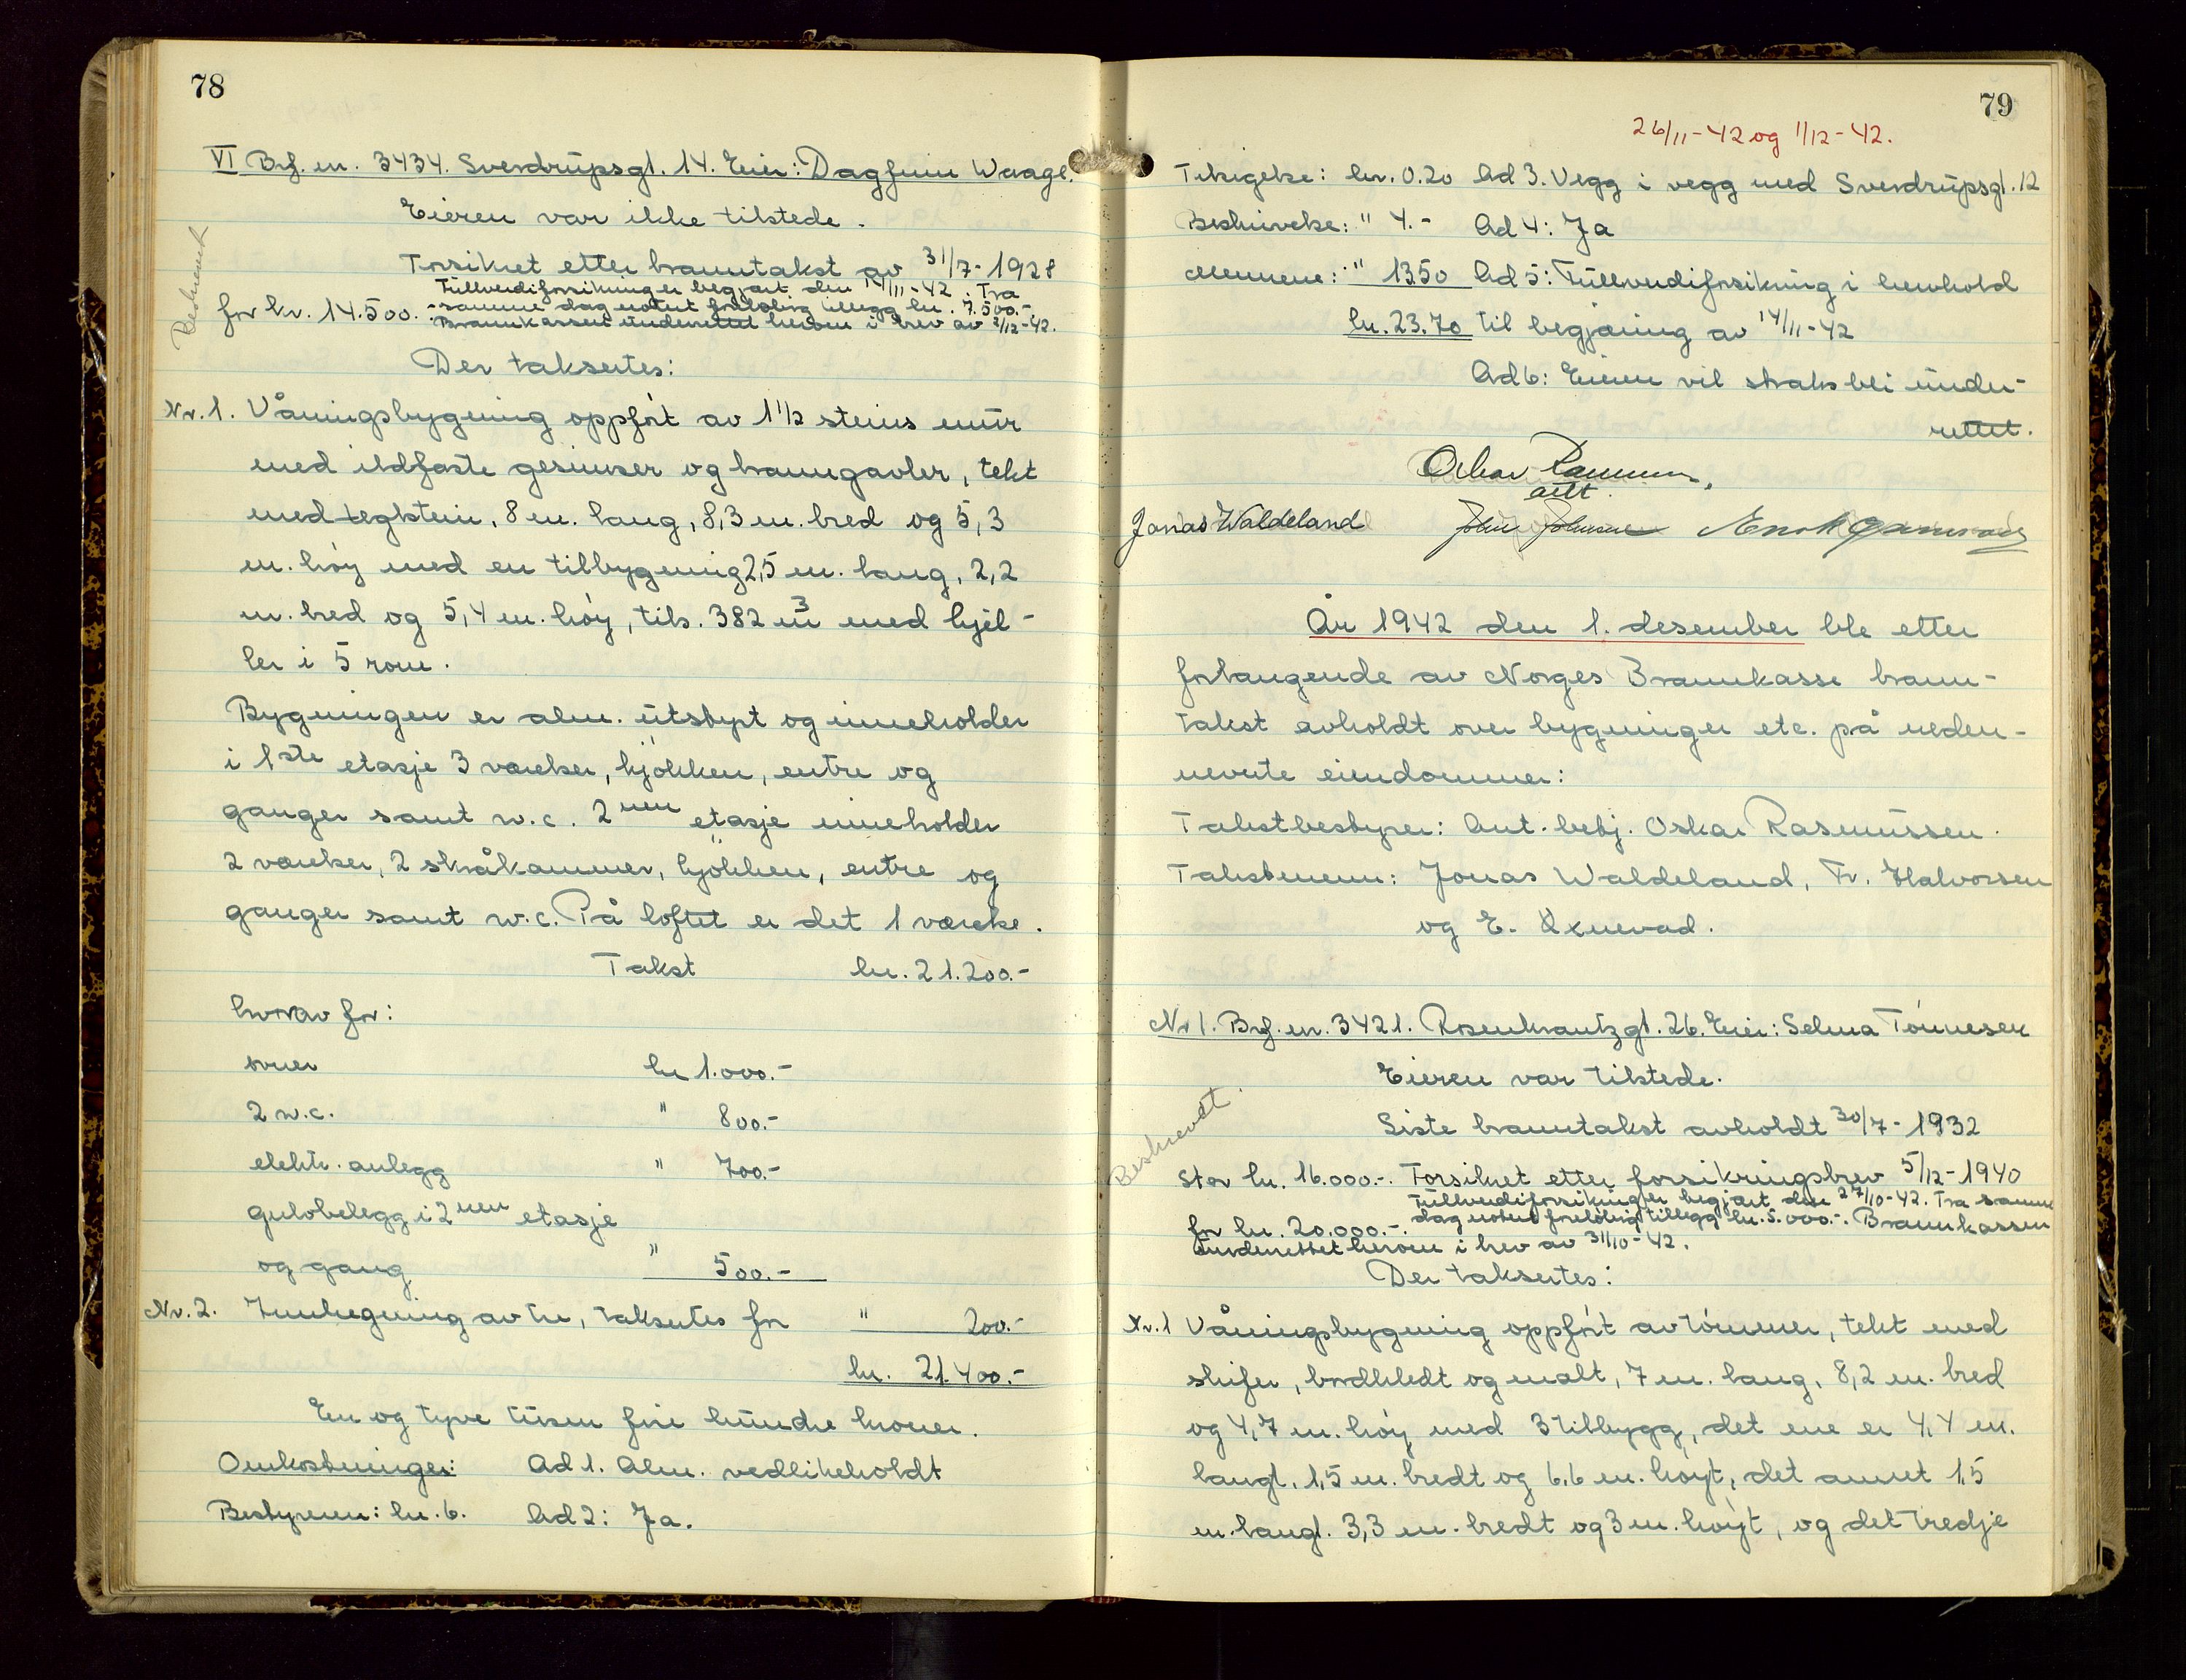 78
VI Brf. nr. 3434. Sverdrupsgt. 14. Eier: Dagfinn Waage.
Eieren var ikke tilstede.
Beskrevet
Forsikret etter branntakst av 31/7-1928
Fullverdiforsikringen begjært den 14/11-42. Fra
samme dag notert foreløbig tillegg kr. 7.500.-
for kr. 14.500.-
Brannkassen underrettet herom i brev av 2/12-42.
Der taksertes:
Nr. 1. Våningsbygning oppført av 1 1/2 steins mur
med ildfaste gesimser og branngavler, tekt
med teglstein, 8 m. lang, 8,3 m. bred og 5,3
m. høy med en tilbygning 2,5 m. lang, 2,2
m. bred og 5,4 m. høy, tils. 382 m3 med kjel-
ler i 5 rom.
Bygningen er alm. utstyrt og inneholder
i 1ste etasje 3 værelser, kjøkken, entre og
ganger samt w.c. 2nen etasje inneholder
2 værelser, 2 skråkammer, kjøkken, entre og
ganger samt w.c. På loftet er det 1 værelse.
Takst kr. 21.200.-
hvorav for:
ovner kr 1.000.-
2 w.c. " 800.-
elektr. anlegg " 700.-
gulvbelegg i 2nen etasje
og gang " 500.-
Nr. 2. Innhegning av tre, taksertes for " 200.-
kr. 21.400.-
En og tyve tusen fire hundre kroner.
Omkostninger: Ad 1. Alm. vedlikeholdt
Bestyreren: kr. 6. Ad 2: Ja.
79
26/11-42 og 1/12-42.
Tilsigelse: kr. 0.20 Ad 3. Vegg i vegg med Sverdrupsgt. 12
Beskrivelse: " 4.- Ad 4: Ja
Mennene: " 13.50 Ad 5: Fullverdiforsikring i henhold
kr. 23.70 til begjæring av 14/11-42
Ad 6: Eieren vil straks bli under-
rettet.
Oskar Rasmussen,
aut.
Jonas Waldeland John Johnsen
År 1942 den 1. desember ble etter
forlangende av Norges Brannkasse brann-
takst avholdt over bygninger etc. på neden-
nevnte eiendommer:
Takstbestyrer: Aut. betj. Oskar Rasmussen.
Takstmenn: Jonas Waldeland, Fr. Halvorsen
og E. Oxnevad.
Nr 1. Brf. nr. 3421. Rosenkrantzgt. 26. Eier: Selma Tønnesen
Eieren var tilstede.
Beskrevet.
Siste branntakst avholdt 30/7-1932
stor kr. 16.000.-. Forsikret etter forsikringsbrev 5/12-1940
Fullverdiforsikringen begjært den 27/10-42. Fra samme
for kr. 20.000.-. dag notert foreløbig tillegg kr. 5.000.-. Brannkassen
underrettet herom i brev av 31/10-42.
Der taksertes:
Nr. 1 Våningsbygning oppført av tømmer, tekt med
skifer, bordkledt og malt, 7 m. lang, 8,2 m. bred
og 4,7 m. høy med 3 tilbygg, det ene er 4,4 m.
langt, 1,5 m. bredt og 6,6 m. høyt, det annet 1,5
m. langt. 3,3 m. bredt og 3 m. høyt, og det tredje